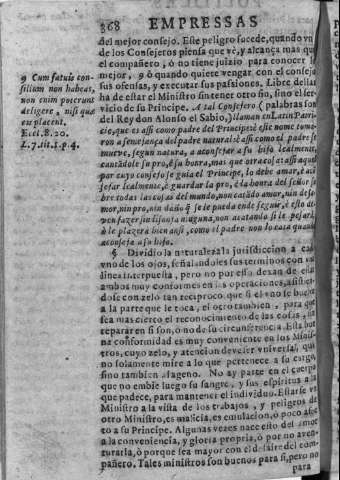 368 EMPRESSAS
del mejor consejo. Este peligro sucede, quando vno
de los Consejeros piensa que vè, y alcança mas que
el compañero, ò no tiene juizio para conocer lo
mejor, 9 ò quando quiere vengar con el consejo
sus ofensas, y executar sus passiones. Libre dellas
ha de estar el Ministro sin tener otro fin, sino el ser-
vicio de su Principe. A tal Consejero (palabras son
del Rey don Alonso el Sabio,) llaman en Latin Patri-
cio, que es assi como padre del Principe: è este nome toma-
ron a semejança del padre natural: è assi como el padre se
mueve, segun natura, a aconsejar a su hijo lealmente,
catandole su pro, è su honra, mas que otra cosa: assi aquel
por cuyo consejo se guia el Principe, lo debe amar, è acō
sejar lealmente, è guardar la pro, è la honra del señor so
bre todas las cosas del mundo, non catādo amor, nin desa-
mor, nin pro, nin daño q̃ se le pueda ende seguir, è esto de-
ven fazer sin lisonja ninguna, non acatando si le pesarà,
ò le plazerà bien ansi, como el padre non lo cata quando
aconseja a su hijo.
§ Dividio la naturaleza la jurisdiccion a cada
vno de los ojos, señalandoles sus terminos con vna
linea interpuesta, pero no por esso dexan de estar
ambos muy conformes en las operaciones, assistien-
dose con zelo tan reciproco, que si el vno se buelve
a la parte que le toca, el otro tambien, para que
sea mas cierto el reconocimiento de las cosas, sin
reparar en si son, ò no de su circunferencia. Esta bue
na conformidad es muy conveniente en los Minis-
tros, cuyo zelo, y atencion deve ser vniversal, que
no solamente mire a lo que pertenece a su cargo,
sino tambien al ageno. No ay parte en el cuerpo
que no embie luego su sangre, y sus espiritus a la
que padece, para mantener el individuo. Estarse vn
Ministro a la vista de los trabajos, y peligros de
otro Ministro, es malicia, es emulacion, ò poco afec-
to a su Principe. Algunas vezes nace esto del amor
a la conveniencia, y gloria propria, ò por no aven-
turarla, ò porque sea mayor con el desaire del com-
pañero. Tales ministros son buenos para si, pero no
para
9 Cum fatuis con-
silium non habeas,
non enim poterunt
deligere, nisi quæ
eis placent.
Eccl. 8. 20.
L. 7. tit. 1. p. 4.